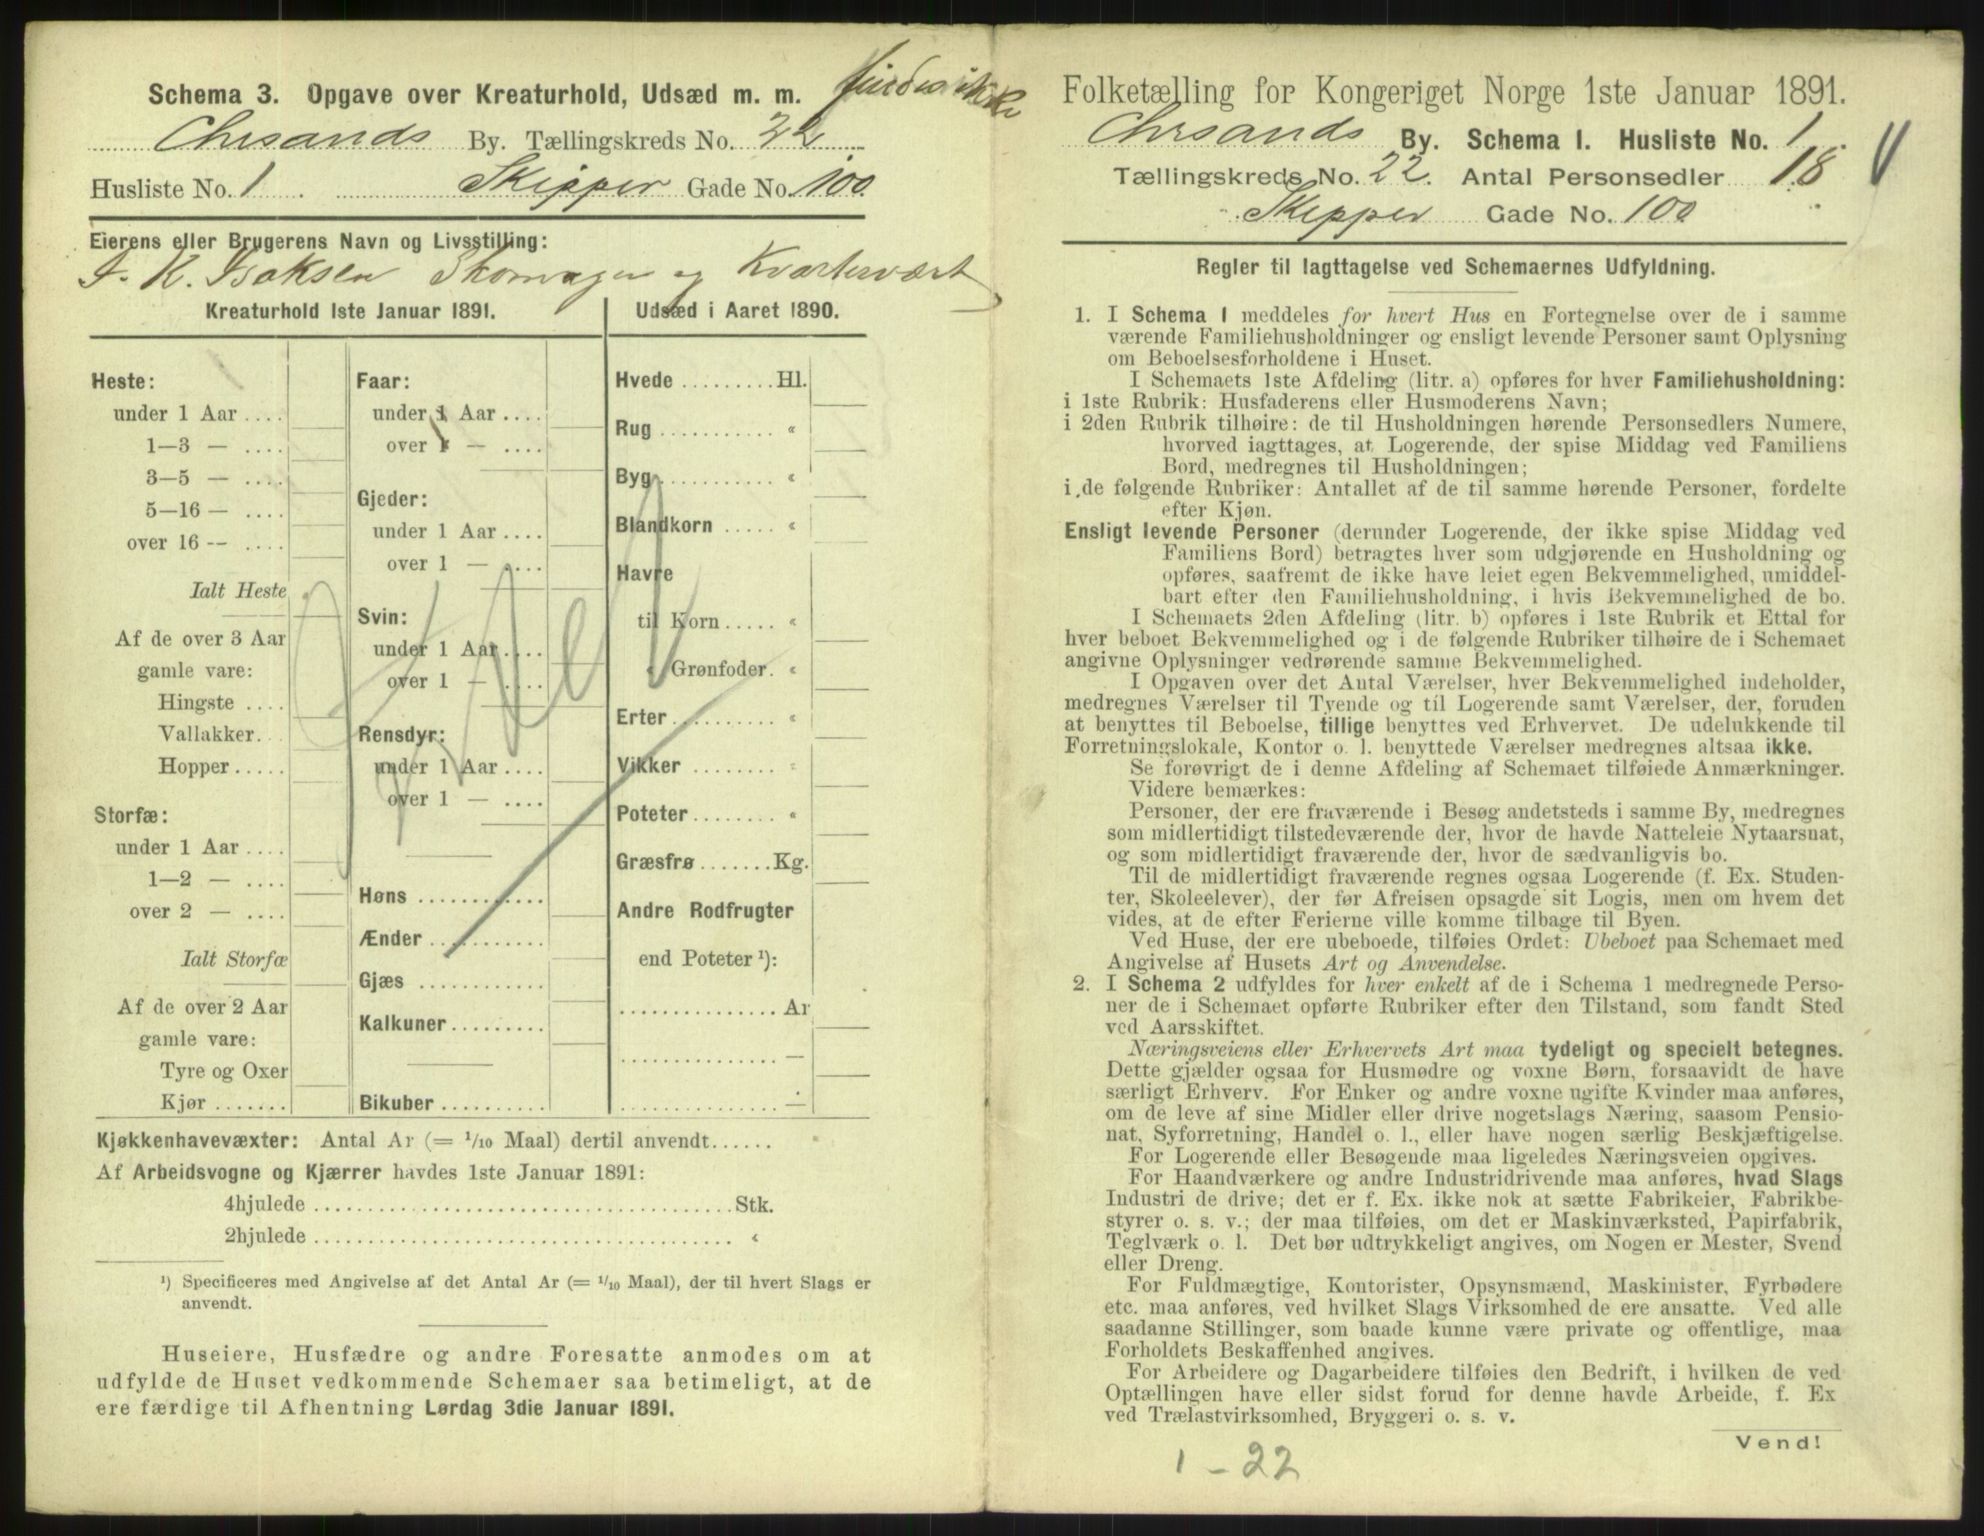 Schema 3. Opgave over Kreaturhold, Udsæd m. m. findes ikke
Chrsands By. Tællingskreds No. 22
Husliste No. 1 Skipper Gade No. 100
Eierens eller Brugerens Navn og Livsstilling:
A. K. Isaksen Skomager og Kvartersvært
Kreaturhold 1ste Januar 1891.
Heste:
under 1 Aar ....
1—3 — ....
3—5 — ....
5—16 — ....
over 16 -- ....
Ialt Heste
Af de over 3 Aar
gamle vare:
Hingste ....
Vallakker..
Hopper.....
Storfæ:
under 1 Aar ....
1—2 — ....
over 2 — ....
Ialt Storfæ
Af de over 2 Aar
gamle vare:
Tyre og Oxer
Kjør .......
Faar:
under 1 Aar ....
over 1 — ....
Gjeder:
under 1 Aar ....
over 1 — ....
Svin:
under 1 Aar ....
over 1 — ....
Rensdyr:
under 1 Aar ....
over 1 — ....
Høns ............
Ænder ...........
Gjæs ............
Kalkuner.........
Bikuber ..........
Udsæd i Aaret 1890.
Hvede .........Hl.
Rug ........... «
Byg........... «
Blandkorn ..... «
Havre
til Korn ..... «
« Grønfoder. «
Erter ......... «
Vikker ........ «
Poteter........ «
Græsfrø .......Kg.
Andre Rodfrugter
end Poteter ¹):
............... Ar
............... —
............... —
Kjøkkenhavevæxter: Antal Ar (= 1/10 Maal) dertil anvendt......
Af Arbeidsvogne og Kjærrer havdes 1ste Januar 1891:
4hjulede ......................................Stk.
2hjulede ...................................... «
¹) Specificeres med Angivelse af det Antal Ar (= 1/10 Maal), der til hvert Slags er
anvendt.
Huseiere, Husfædre og andre Foresatte anmodes om at
udfylde de Huset vedkommende Schemaer saa betimeligt, at de
ere færdige til Afhentning Lørdag 3die Januar 1891.
Folketælling for Kongeriget Norge 1ste Januar 1891.
Chrsands By. Schema I. Husliste No. 1.
Tællingskreds No. 22. Antal Personsedler 18
Skipper Gade No. 100
Regler til Iagttagelse ved Schemaernes Udfyldning.
1. I Schema I meddeles for hvert Hus en Fortegnelse over de i samme
værende Familiehusholdninger og ensligt levende Personer samt Oplysning
om Beboelsesforholdene i Huset.
I Schemaets 1ste Afdeling (litr. a) opføres for hver Familiehusholdning:
i 1ste Rubrik: Husfaderens eller Husmoderens Navn;
i 2den Rubrik tilhøire: de til Husholdningen hørende Personsedlers Numere,
hvorved iagttages, at Logerende, der spise Middag ved Familiens
Bord, medregnes til Husholdningen;
i de følgende Rubriker: Antallet af de til samme hørende Personer, fordelte
efter Kjøn.
Ensligt levende Personer (derunder Logerende, der ikke spise Middag ved
Familiens Bord) betragtes hver som udgjørende en Husholdning og
opføres, saafremt de ikke have leiet egen Bekvemmelighed, umiddel-
bart efter den Familiehusholdning, i hvis Bekvemmelighed de bo.
I Schemaets 2den Afdeling (litr. b) opføres i 1ste Rubrik et Ettal for
hver beboet Bekvemmelighed og i de følgende Rubriker tilhøire de i Schemaet
angivne Oplysninger vedrørende samme Bekvemmelighed.
I Opgaven over det Antal Værelser, hver Bekvemmelighed indeholder,
medregnes Værelser til Tyende og til Logerende samt Værelser, der, foruden
at benyttes til Beboelse, tillige benyttes ved Erhvervet. De udelukkende til
Forretningslokale, Kontor o. l. benyttede Værelser medregnes altsaa ikke.
Se forøvrigt de i denne Afdeling af Schemaet tilføiede Anmærkninger.
Videre bemærkes:
Personer, der ere fraværende i Besøg andetsteds i samme By, medregnes
som midlertidigt tilstedeværende der, hvor de havde Natteleie Nytaarsnat,
og som midlertidigt fraværende der, hvor de sædvanligvis bo.
Til de midlertidigt fraværende regnes ogsaa Logerende (f. Ex. Studen-
ter, Skoleelever), der før Afreisen opsagde sit Logis, men om hvem det
vides, at de efter Ferierne ville komme tilbage til Byen.
Ved Huse, der ere ubeboede, tilføies Ordet: Ubeboet paa Schemaet med
Angivelse af Husets Art og Anvendelse.
2. I Schema 2 udfyldes for hver enkelt af de i Schema 1 medregnede Perso-
ner de i Schemaet opførte Rubriker efter den Tilstand, som fandt Sted
ved Aarsskiftet.
Næringsveiens eller Erhvervets Art maa tydeligt og specielt betegnes.
Dette gjælder ogsaa for Husmødre og voxne Børn, forsaavidt de have
særligt Erhverv. For Enker og andre voxne ugifte Kvinder maa anføres,
om de leve af sine Midler eller drive nogetslags Næring, saasom Pensio-
nat, Syforretning, Handel o. l., eller have nogen særlig Beskjæftigelse.
For Logerende eller Besøgende maa ligeledes Næringsveien opgives.
For Haandværkere og andre Industridrivende maa anføres, hvad Slags
Industri de drive; det er f. Ex. ikke nok at sætte Fabrikeier, Fabrikbe-
styrer o. s. v.; der maa tilføies, om det er Maskinværksted, Papirfabrik,
Teglværk o. l. Det bør udtrykkeligt angives, om Nogen er Mester, Svend
eller Dreng.
For Fuldmægtige, Kontorister, Opsynsmænd, Maskinister, Fyrbødere
etc. maa anføres, ved hvilket Slags Virksomhed de ere ansatte. Ved alle
saadanne Stillinger, som baade kunne være private og offentlige, maa
Forholdets Beskaffenhed angives.
For Arbeidere og Dagarbeidere tilføies den Bedrift, i hvilken de ved
Optællingen have eller sidst forud for denne havde Arbeide, f. Ex
ved Trælastvirksomhed, Bryggeri o. s. v.
Vend!
1 - 22